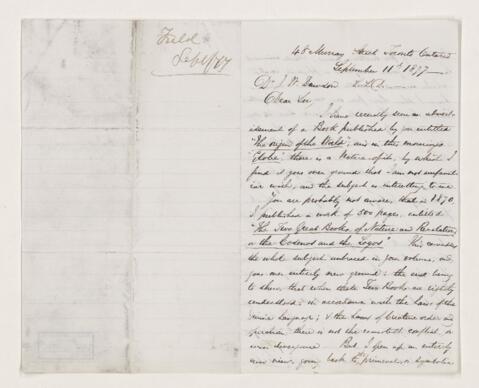 Field
Sept/77
48 Murray Street Toronto Ontario
September 11th 1877
Dr J. W. Dawson L.L.D.
Dear Sir,
I have recently seen an advert-
isement of a Book published by you entitled
"The Origin of the World", and in this mornings
"Globe", there is a Notice of it, by which I
find it goes over ground that I am not unfamil-
iar with, and the subject is interesting to me.
You are probably not aware, that in 1870,
I published a work of 500 pages, entitled
"The Two Great Books, of Nature and Revelation,
or the Cosmos and the Logos". This
the whole subject embraced in your volume, and
goes over entirely new ground: the end being
to show, that when these Two Books are rightly
understood, in accordance with the Laws of the
Language; & the Laws of Creative order and
there is not the smallest conflict or
even divergence. But, I open up an entirely
new view, going back to primeval or symbolic